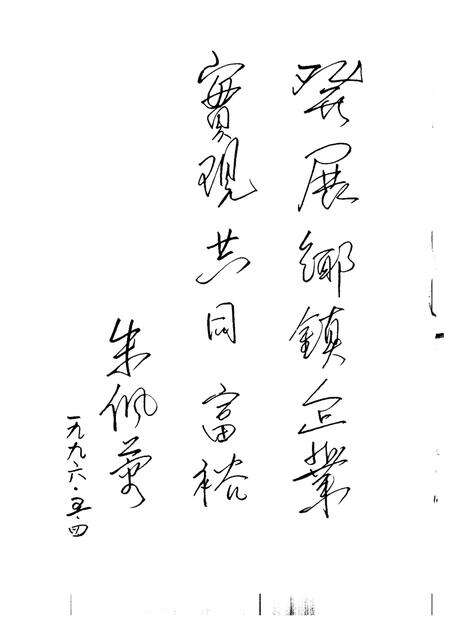 發展鄉鎮企業
實現共同富裕
朱佩蓉
一九九六·五·四